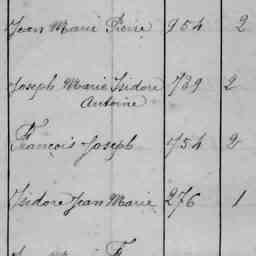 Jean Marie Pierre 954 2
Joseph Marie Isidore 739 2
Antoine
François Joseph 754 2
Isidore Jean Marie 276 1